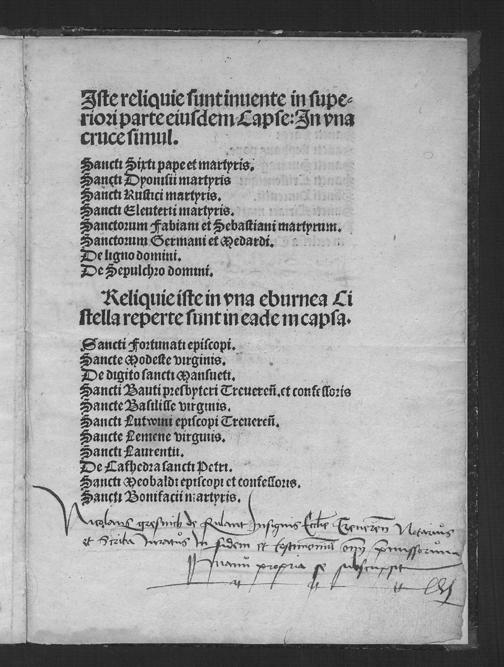 Iste reliquie sunt inuente in supe-
riori parte eiusdem Capse: In vna
cruce simul.
Sancti Sixti pape et martyris.
Sancti Dyonisii martyris
Sancti Rustici martyris.
Sancti Elenterii martyris.
Sanctorum Fabiani et Sebastiani martyrum.
Sanctorum Germani et Medardi.
De ligno domini.
De Sepulchro domini.
Reliquie iste in vna eburnea Ci
stella reperte sunt in eadē capsa.
Sancti Fortunati episcopi.
Sancte Modeste virginis.
De digito sancti Mansueti.
Sancti Bauti presbyteri Treuereñ. et confessoris
Sancte Basilisse virginis.
Sancti Lutwini episcopi Treuereñ.
Sancte Lemene virginis.
Sancti Laurentii.
De Cathedra sancti Petri.
Sancti Meobaldi episcopi et confessoris.
Sancti Bonifacii martyris.
de Insignis Ecclie Treuereñ Notarius
et Scriba Iuratus In fidem et testimoniū premissorum
Manu propria se subscripsit